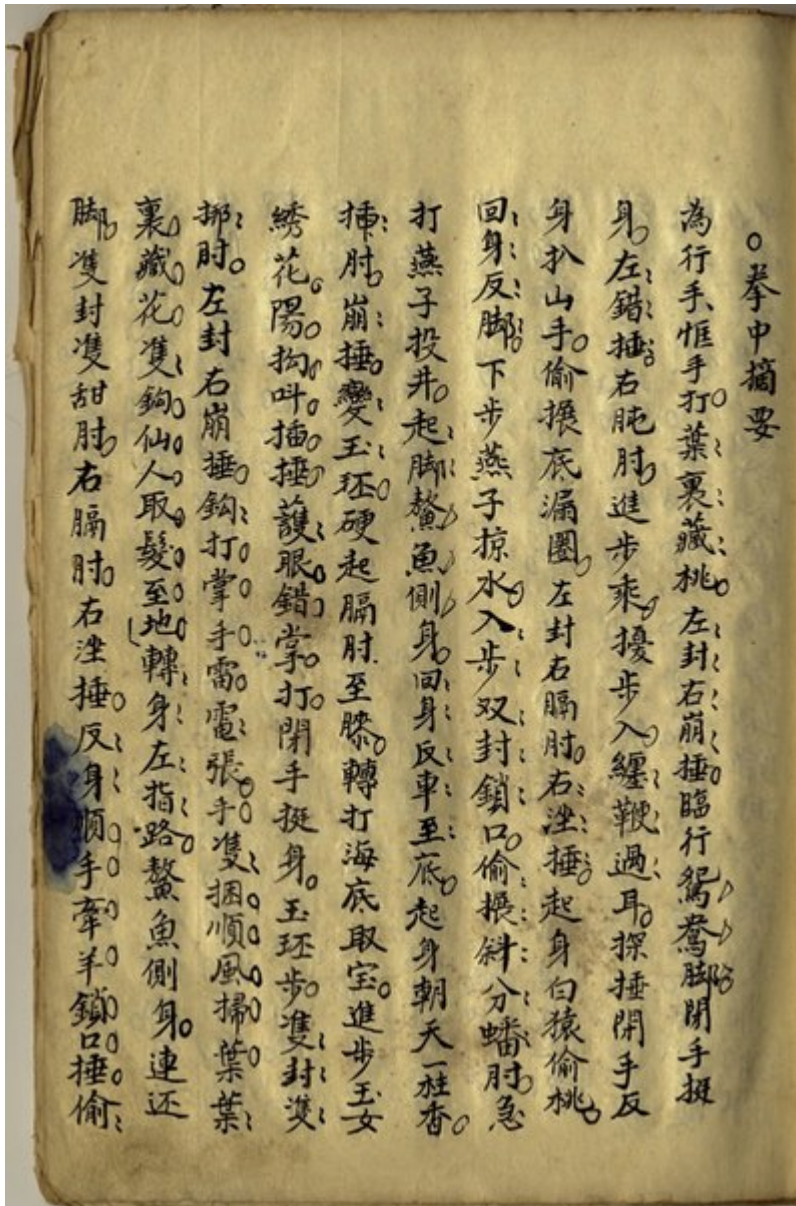 拳中摘要
為行手惟手打葉裏藏桃左封右崩捶臨行鴛鴦脚閉手挺
身左錯捶右肫肘進步乘擾步入纏鞭過耳探捶閉手反
身扒山手偷摄底漏圈左封右膈肘右溼捶起身白猿偷桃
回身反脚下步燕子掠水入步双封鎖口偷摄斜分蟠肘急
打燕子投井起脚鰲魚側身回身反車至底起身朝天一柱香
捶肘崩捶變玉环硬起膈肘至膝轉打海底取宝進步玉女
綉花陽拘呌插捶護眼錯掌打閉手挺身玉环步隻封隻
挪肘左封右崩捶鈎打掌手雷電張手隻捆順風掃葉葉
裏藏花隻鈎仙人取髮至地轉身左指路鰲魚側身連还
脚隻封隻甜肘右膈肘右溼捶反身順手牽羊鎖口捶偷